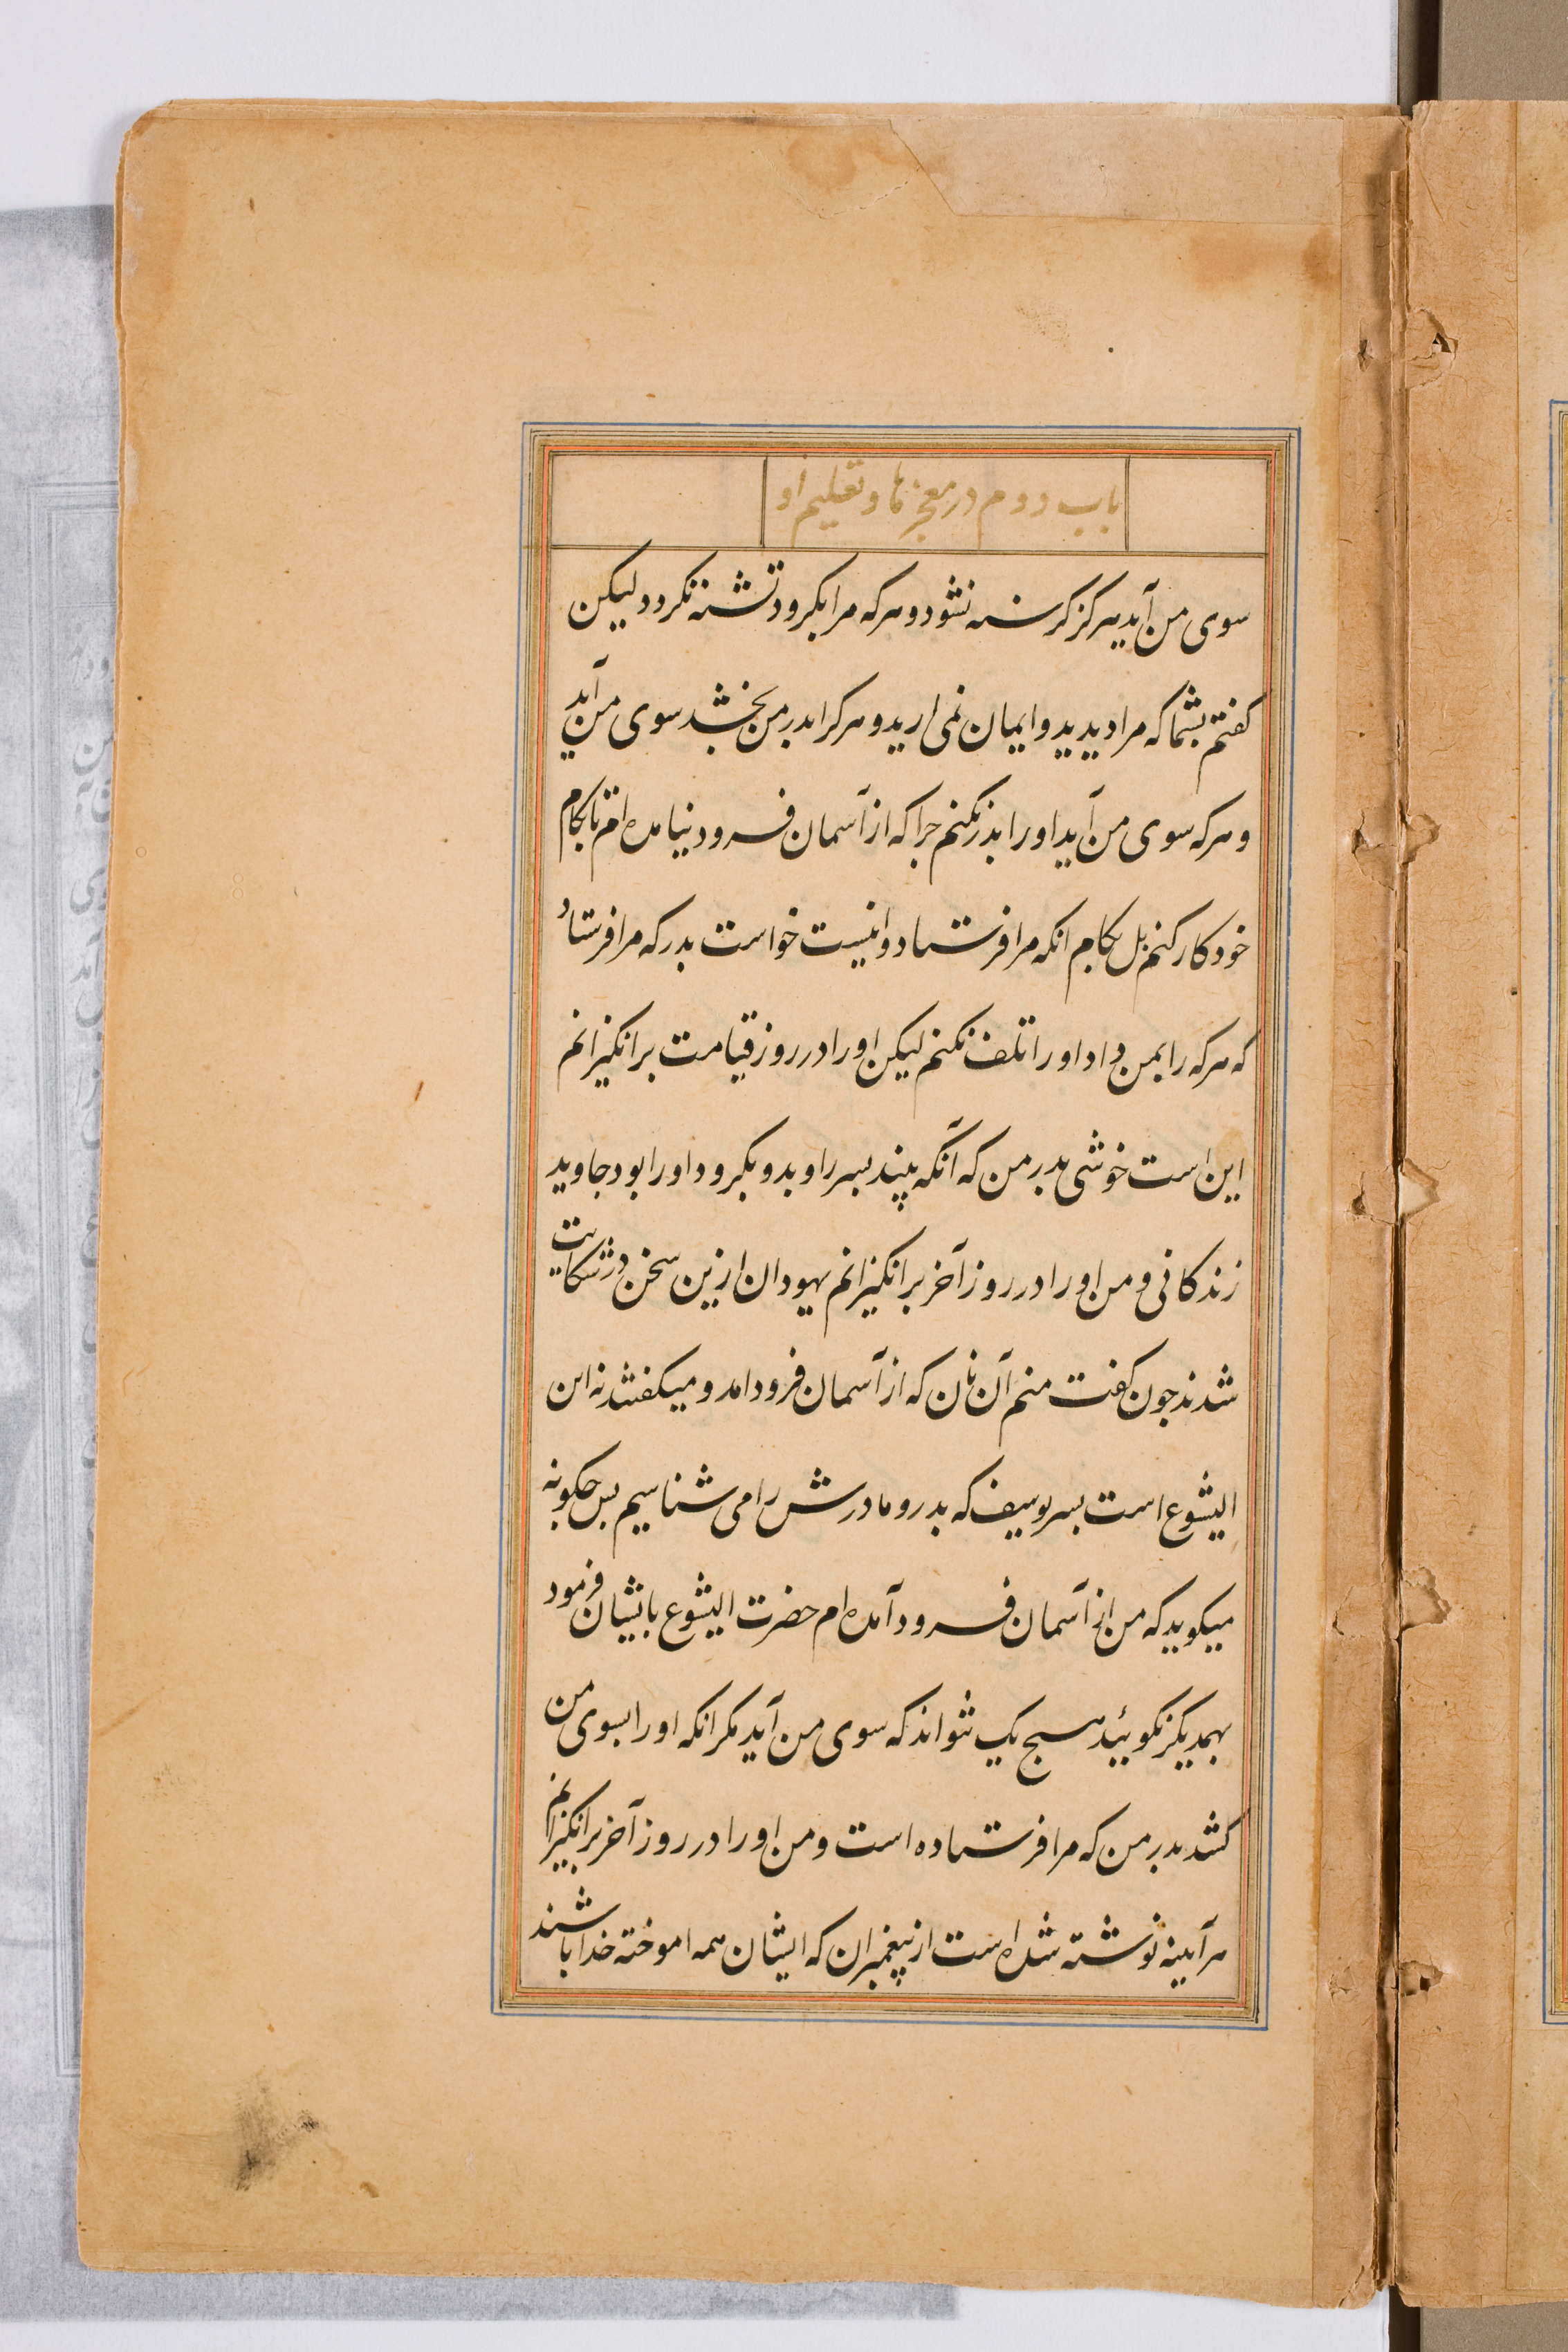 باب دوم در معجزها و تعلیم او
سوی من آید هرکز کرسنه نشود و هرکه مرا بکرود تشنه نکرود لیکن
کفتم بشما که مرا دیدید و ایمان نمی ارید و هرکرا بدر من بخشد سوی من آید
و هرکه سوی من آید او را بدر نکنم جرا که از آسمان فرود نیامده ام تا بکام
خود کار کنم بل بکام انکه مرا فرستاد و اینست خواست بدر که مرا فرستاد
که هرکه را بمن داد او را تلف نکنم لیکن او را در روز قیامت برانکیزانم
این است خوشی بدر من که آنکه بیند بسر را و بدو بکرود او را بود جاوید
زندکانی و من او را در روز آخر برانکیزانم یهودان ازین سخن در شکایت
شدند جون کفت منم آن نان که از آسمان فرود امد و میکفتند نه این
الیشوع است بسر یوسف که بدر و مادرش را می شناسیم بس جکونه
میکوید که من از آسمان فرود آمده ام حضرت الیشوع بایشان فرمود
بهمدیکر نکوئید هیج یک نتواند که سوی من آید مکر انکه او را بسوی من
کشد بدر من که مرا فرستاده است و من او را در روز آخر برانکیزانم
هرآیینه نوشته شده است از پیغمبران که ایشان همه اموخته خدا باشند